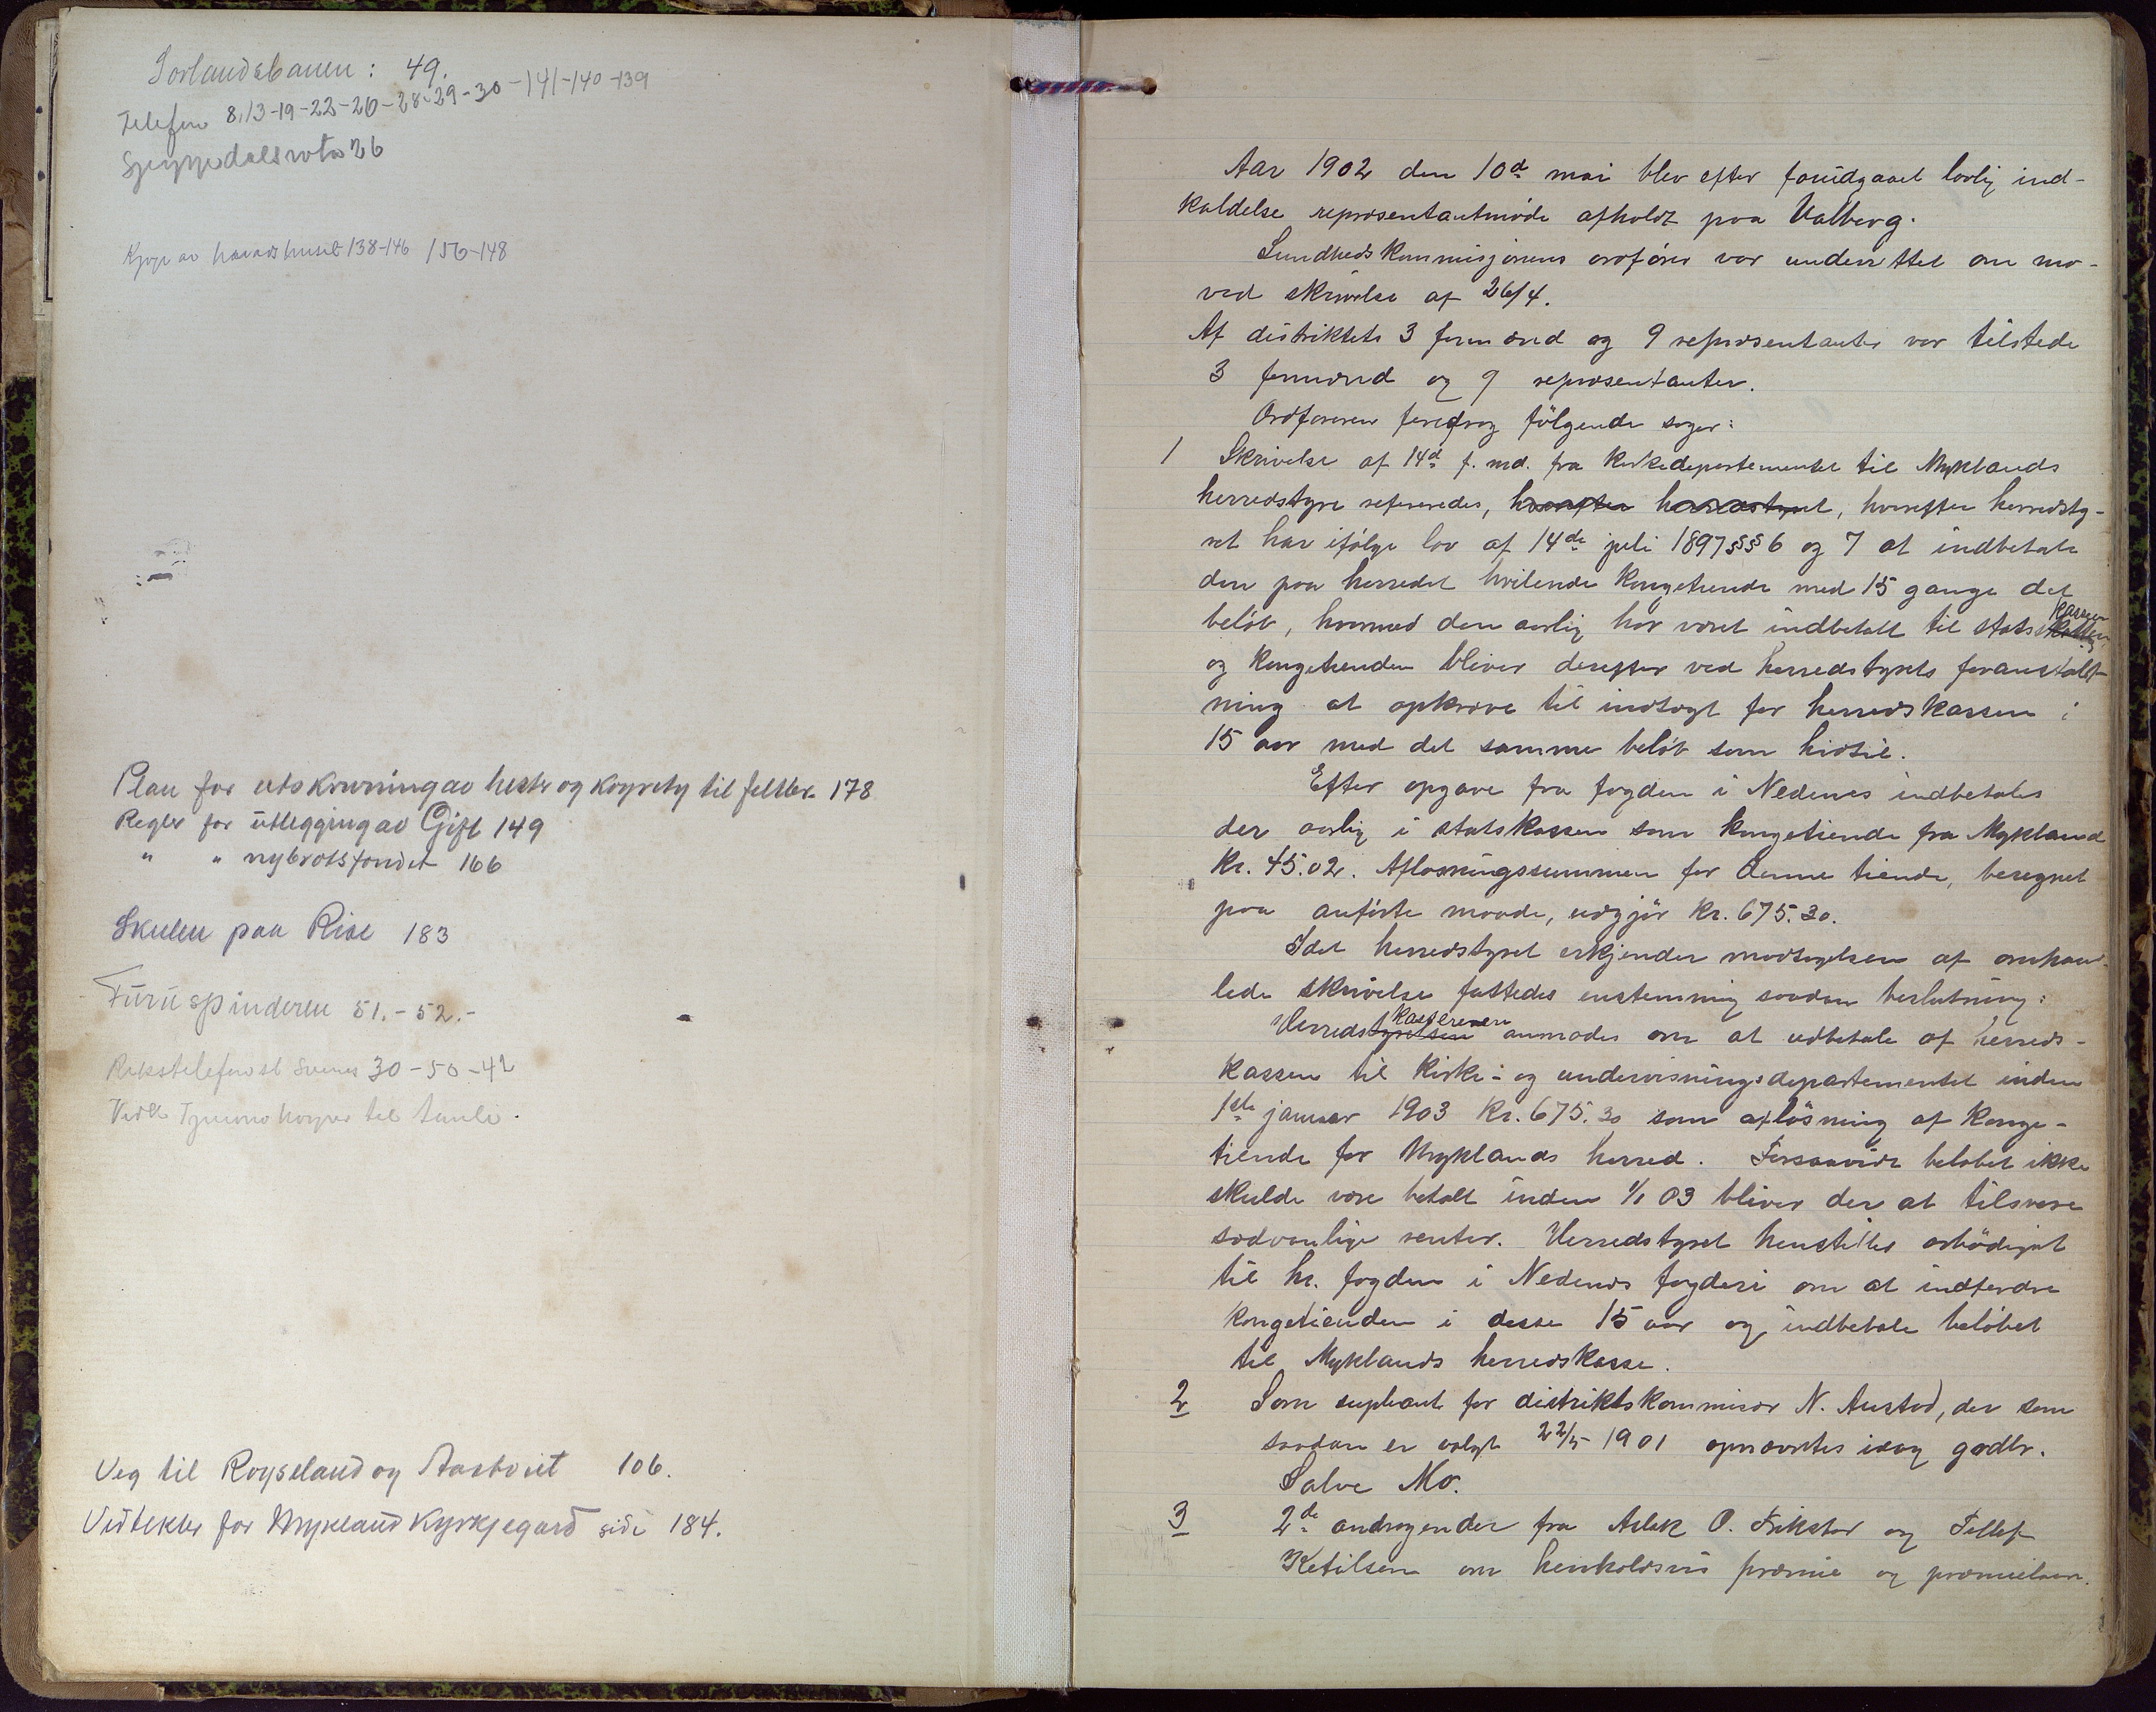 Sørlandsbanen: 49.
Telefon 8,13-19-22-20-28-29-30-141-140-139
26
Kjøp av heradshuset 138-146 156-148
Plan for utskrivning av hester og køyrety til feltbr. 178
Regler for utlegging av Gift 149
" " nybrotsfondet 166
Skulen paa Rise 183
Furuspinderen 51.-52.-
Rikstelefonst Svenes 30-50-42
til
Veg til Røyseland og Aastveit 106.
Vedtekter for Mykland Kyrkjegard side 184.
Aar 1902 den 10d mai blev efter forudgaaet lovlig ind-
kaldelse repræsentantmøde afholdt paa Valberg.
Sundhedskommisjonens ordfører var underettet om mø-
ved skrivelse af 26/4.
Af distriktets 3 formænd og 9 repræsentanter var tilstede
3 formænd og 9 repræsentanter.
Ordføreren foredrog følgende sager:
1 Skrivelse af 14d f. md. fra kirkedepartementet til Myklands
herredstyre refereredes, hvorefter herredstyret, hvorefter herredsty-
ret har ifølge lov af 14de juli 1897 §§§ 6 og 7 at indbetale
den paa herredet hvilende kongetiende med 15 gange det
beløb, hvormed den aarlig har været indbetalt til statskassen
og kongetienden bliver derefter ved herredstyrets foranstalt-
ning at opkræve til indtægt for herredskassen i
15 aar med det samme beløb som hidtil.
Efter opgave fra fogden i Nedenes indbetales
der aarlig i statskassen som kongetiende fra Mykland
Kr. 45.02. Afløsningssummen for denne tiende, beregnet
paa anførte maade, udgjør Kr. 675.30.
Idet herredstyret erkjender modtagelsen af omhand-
lede skrivelse fattedes enstemmig saadan beslutning:
Herredstyrelsen kassereren anmodes om at udbetale af herreds-
kassen til Kirke- og undervisningsdepartementet inden
1ste januar 1903 Kr. 675.30 som afløsning af konge-
tiende for Myklands herred. Forsaavidt beløbet ikke
skulde være betalt inden 1/1 03 bliver der at tilsvare
sædvanlige renter. Herredstyret henstilles ærbødigst
til hr. fogden i Nedenes fogderi om at indfordre
kongetienden i disse 15 aar og indbetale beløbet
til Myklands herredskasse.
2 Som supleant for distriktskommisær N. Austad, der som
saadan er valgt 22/5 1901 opnævntes idag gaardbr.
Salve Mo.
3 2de andragender fra Aslak O. Frikstad og Tellef
Ketilsen om henholdsvis præmie og præmielaan.